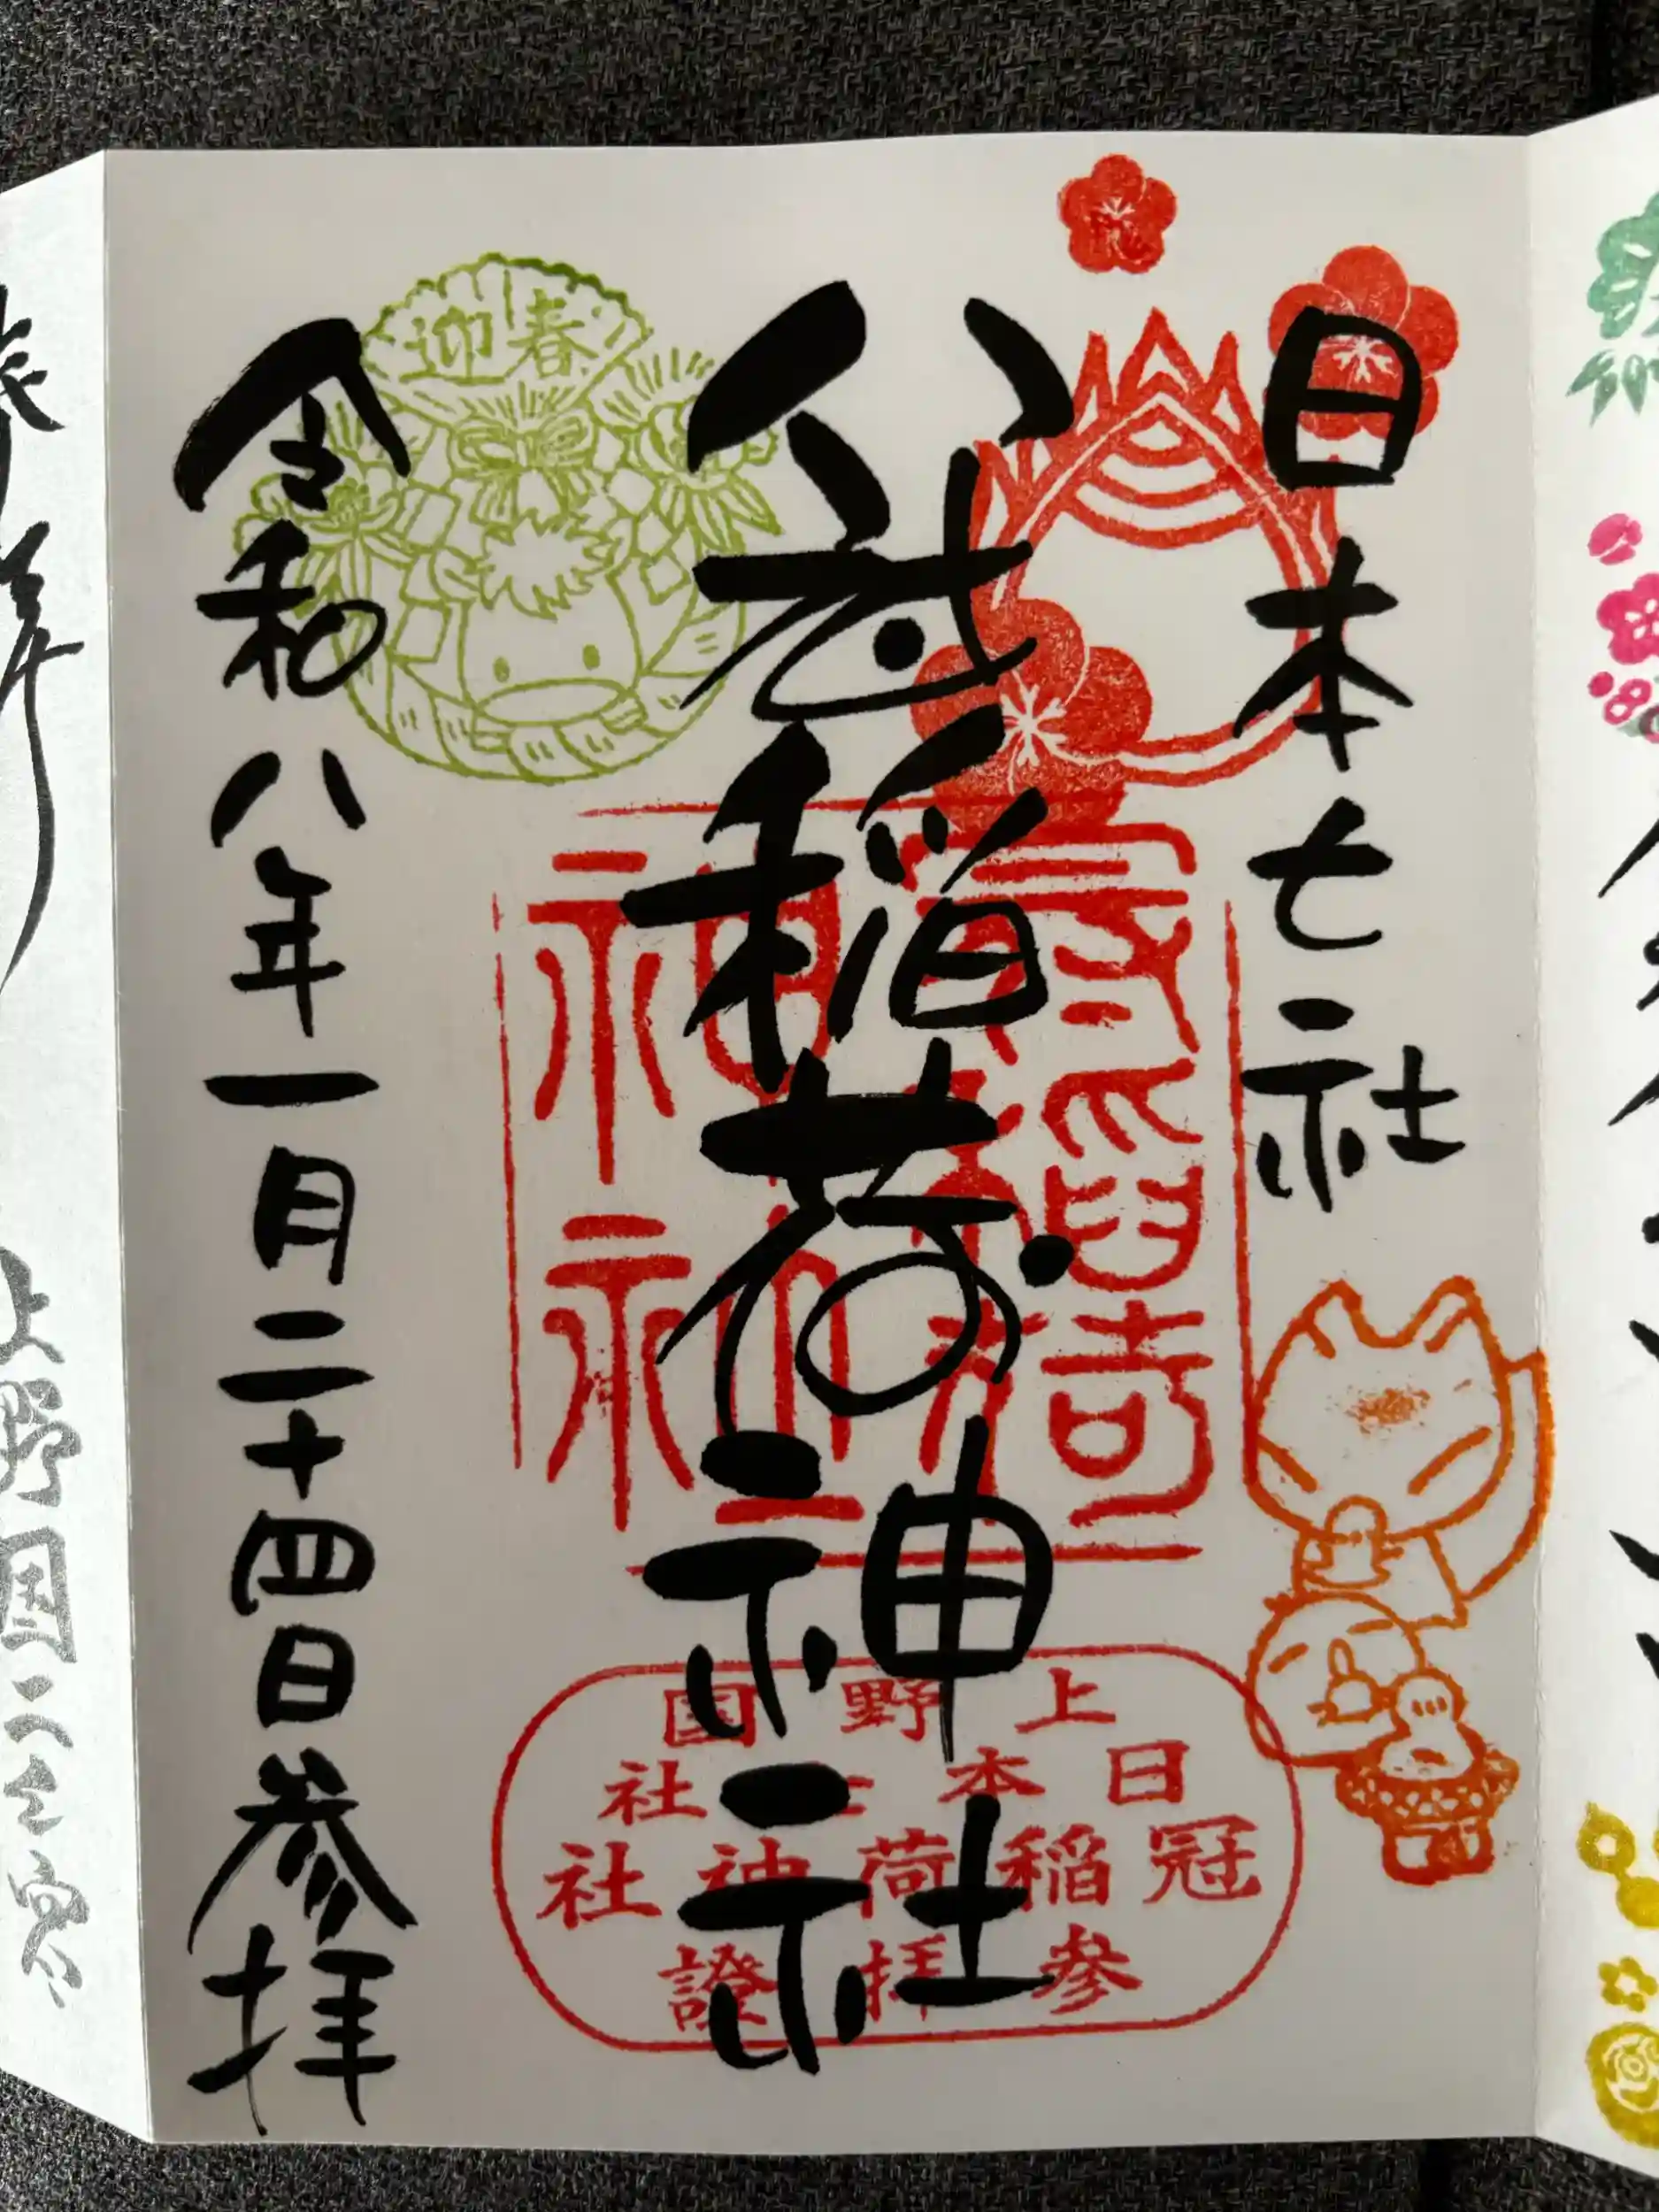 日本七社
冠稲荷神社
令和八年一月二十四日参拝
迎春
上野国
日本七社
冠稲荷神社
参拝證
上野国一之宮